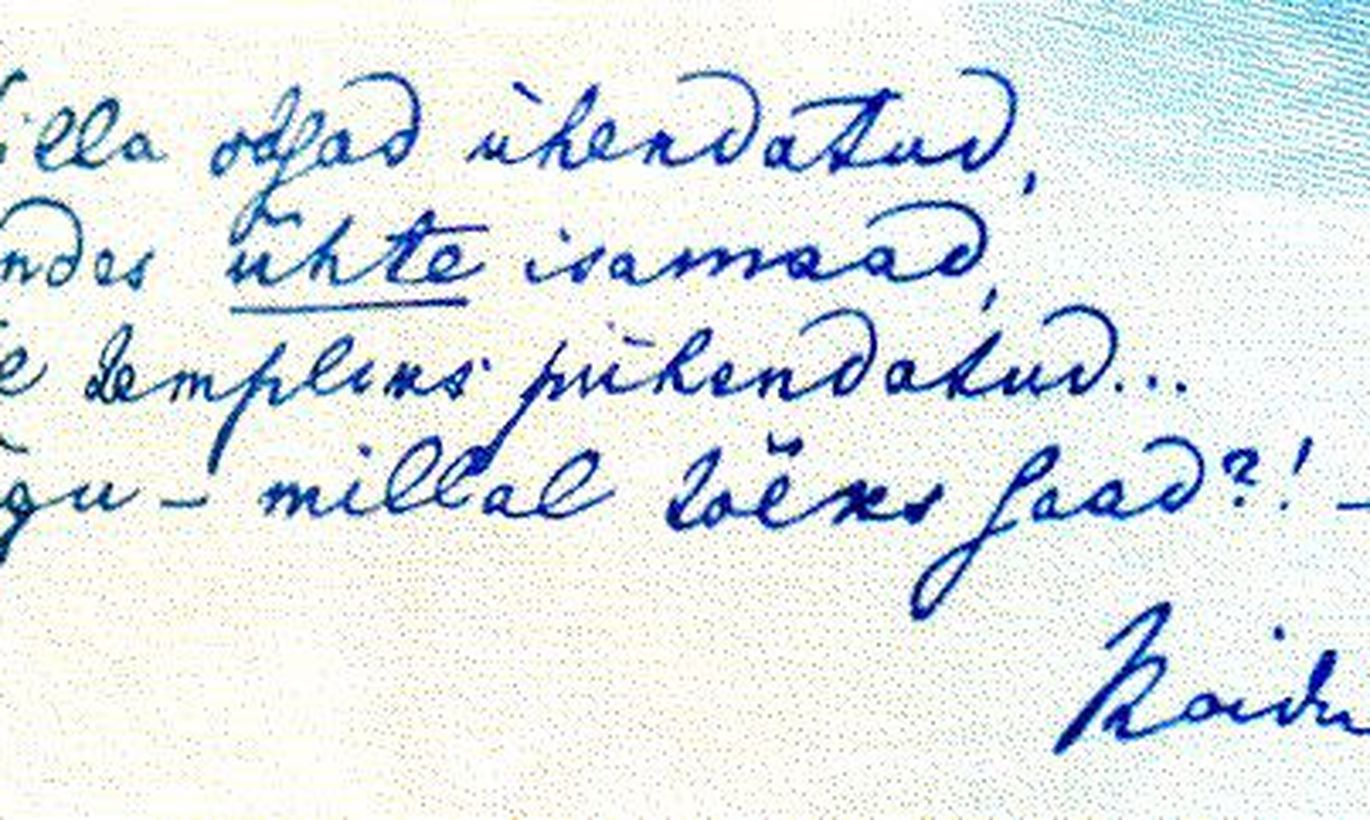 illa otsad ühendatud,
ndes ühte isamaad,
e templiks pühendatud...
gu – millal tõeks saad?! –
Koidu